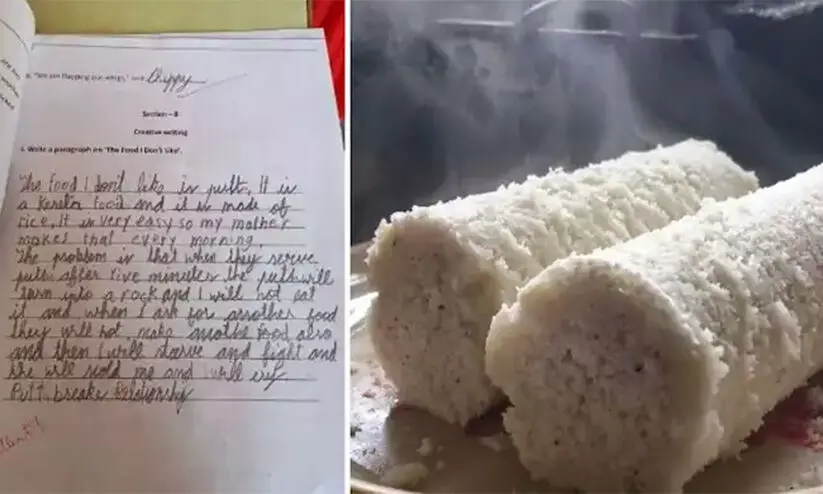 "We are flapping our wings," said Chippy
Section – B
Creative writing
Write a paragraph on 'The Food I Don't Like'.
The food I don't like is putt. It is
a Kerala food and it is made of
rice. It is very easy so my mother
makes that every morning.
The problem is that when they serve
putt after five minutes the putt will
turn into a rock and I will not eat
it and when I ask for another food
they will not make anothe food also
and then I will starve and fight and
she will scold me and I will cry
Putt breaks Relationship